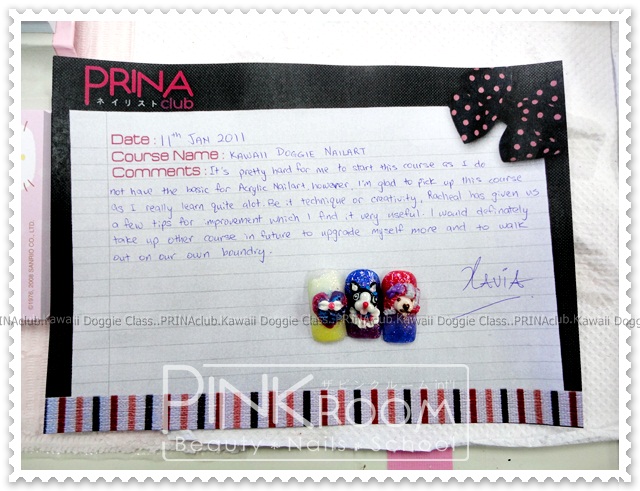 PRINA
ネイリスト club
Date : 11th JAN 2011
Course Name : KAWAII DOGGIE NAILART
Comments : It's pretty hard for me to start this course as I do
not have the basic for Acrylic Nailart. however, I'm glad to pick up this course
as I really learn quite alot. Be it technique or creativity. Racheal has given us
a few tips for improvement which I find it very useful. I would definately
take up other course in future to upgrade myself more and to walk
out on our own boundry.
XAVIA
©1976, 2008 SANRIO CO., LTD.
PRINAclub.Kawaii Doggie Class..PRINAclub.Kawaii Doggie Class..PRINAclub.Kawaii Doggie Class..PRINAclub.Kawaii
ザ ピンク ルーム int'l
PINK ROOM
Beauty Nails School